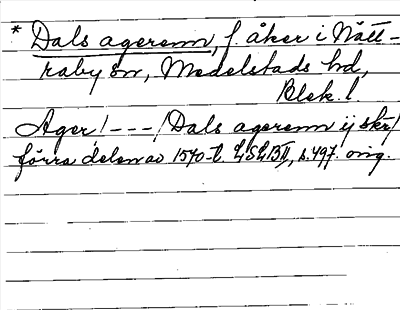 * Dals agerenn, f. åker i Nätt-
raby sn, Medelstads hd,
Blek. l.
Ager / - - - / Dals agerenn ij skr /
förra delen av 1570-t. LSLBII, s. 497. orig.